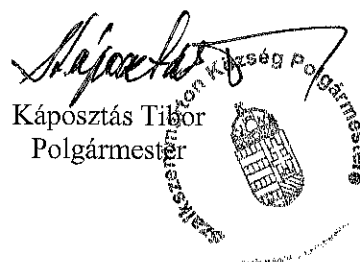 Káposztás
Káposztás Tibor
Polgármester
Szalkszentmárton Község Polgármestere